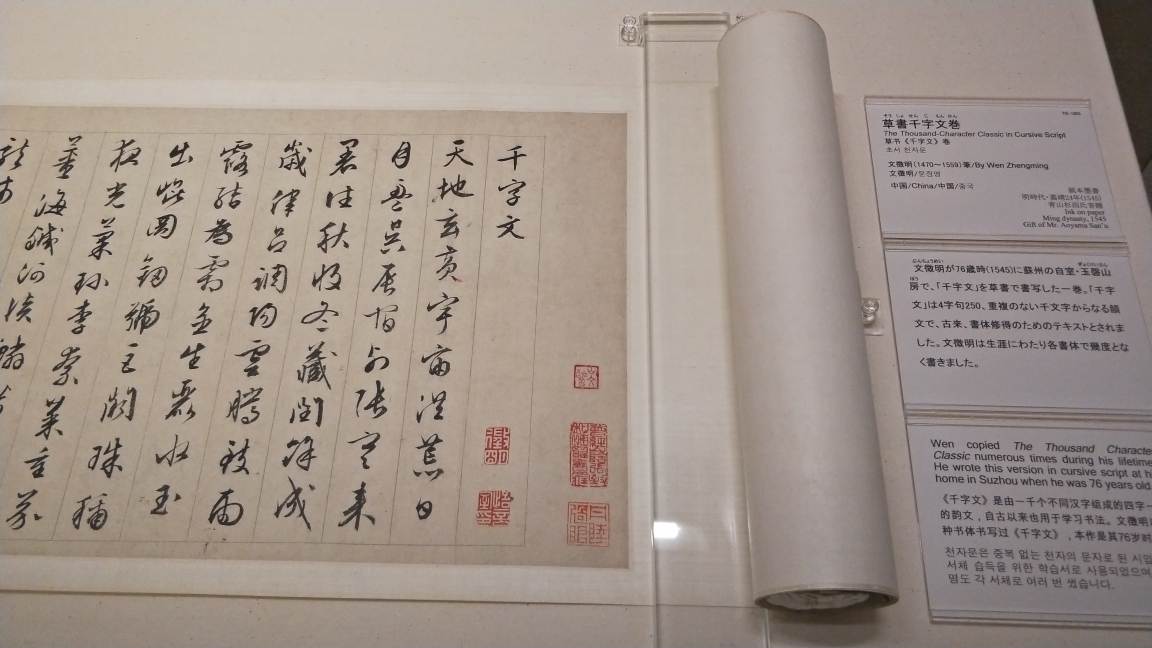 千字文
天地玄黄宇宙洪荒日
月盈昃辰宿列張寒来
暑往秋收冬藏閏餘成
歲律呂調陽雲騰致雨
露結為霜金生麗水玉
出崑岡劍號巨闕珠稱
夜光菓珍李柰菜重芥
薑海鹹河淡鱗
草書千字文巻
The Thousand-Character Classic in Cursive Script
草书《千字文》卷
초서 천자문
文徵明(1470～1559)筆/By Wen Zhengming
文徵明/문징명
中国/China/中国/중국
紙本墨書
明時代・嘉靖24年(1545)
青山杉雨氏寄贈
Ink on paper
Ming dynasty, 1545
Gift of Mr. Aoyama San'u
文徵明が76歳時(1545)に蘇州の自室・玉磬山
房で、「千字文」を草書で書写した一巻。「千字
文」は4字句250、重複のない千文字からなる韻
文で、古来、書体修得のためのテキストとされま
した。文徵明は生涯にわたり各書体で幾度とな
く書きました。
Wen copied The Thousand Characte
Classic numerous times during his lifetime
He wrote this version in cursive script at hi
home in Suzhou when he was 76 years old.
《千字文》是由一千个不同汉字组成的四字一
的韵文，自古以来也用于学习书法。文徵明
种书体书写过《千字文》，本作是其76岁时
천자문은 중복 없는 천자의 문자로 된 시입
서체 습득을 위한 학습서로 사용되었으며
명도 각 서체로 여러 번 썼습니다.